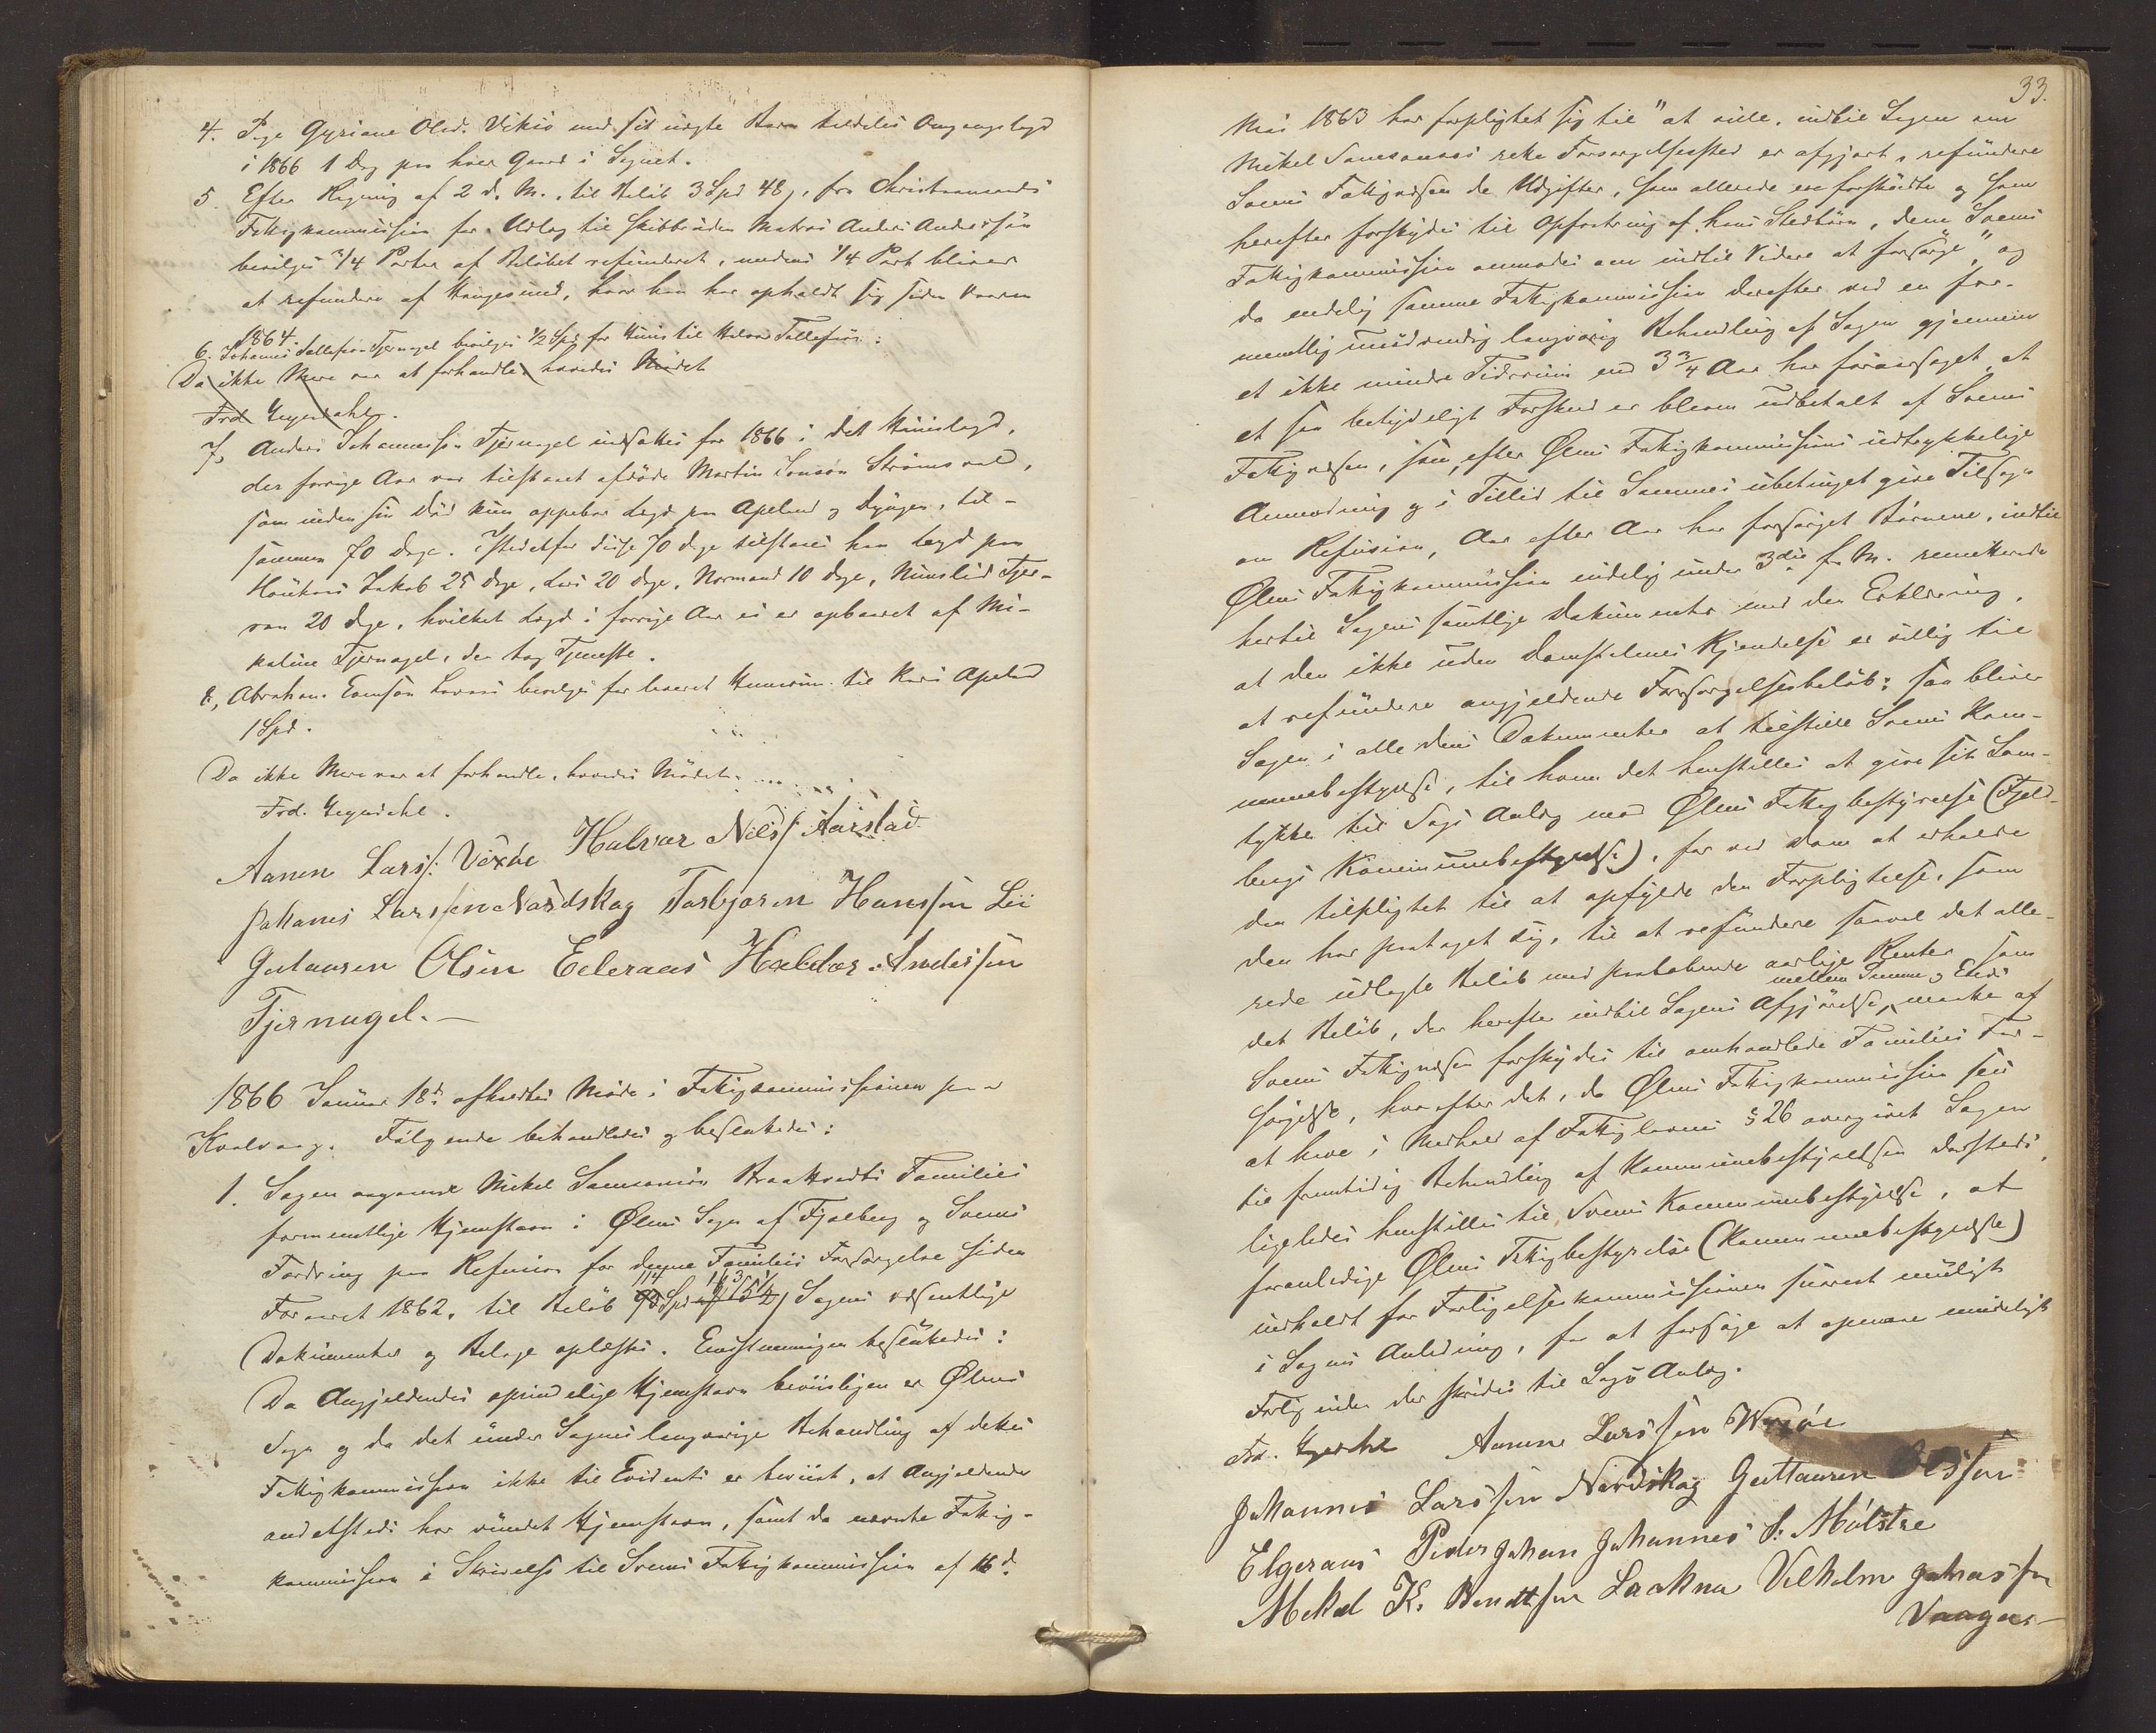 4. Pige Gyriane Olsd. Vikse med sit uægte Barn tildeles Omgangslægd
i 1866 1 Dag paa hver Gaard i Sognet.
5. Efter Regning af 2 d. M., til Beløb 3 Spd 48 s, fra Christianssands
Fattigkommission for Udlæg til skibbruden Matros Anders Anderssøn
bevilges 3/4 Parter af Beløbet refunderet, medens 1/4 Part bliver
at refundere af Haugesund, hvor han har opholdt sig siden Vaaren
1864.
6. Johannes Tollefsen Tjernagel bevilges 1/2 Spd for Huus til Tollefsen:
Da ikke Mere var at forhandle, hævedes Mødet
Frd.
7, Anders Johannessøn Tjernagel indsættes for 1866 i det Huuslægd,
der forrige Aar var tilstaaet afdøde Martin Jonsøn Strømsvold,
som inden sin Død kun oppebar Lægd paa Apeland og Dyngen, til-
sammen 70 Dage. Istedetfor disse 70 Dage tilstaaes han Lægd paa
Jakob 25 Dage, Lars 20 Dage, Normand 10 Dage, Tjer-
van 20 Dage, hvilket Lægd i forrige Aar ei er opbaaret af Mi-
kaline Tjernagel, der tog Tjeneste.
8, Abraham bevilges for leveret til Kari Apeland
1 Spd.
Da ikke Mere var at forhandle, hævedes Mødet.
Frd.
Aanen Lars/: Vexøe Halvar Nils/ Aarslad
Johanes Larssen Nordskag Torbjørn Hanssøn Lie
Guttaarm Olsen Eeleraas Haldor Anderssen
Tjernagel. —
1866 Januar 18de afholdtes Møde i Fattigkommissionen paa
Kvalvaag. Følgende behandledes og besluttedes:
1. Sagen angaaende Mikel Samsonsøn Braatvedts Families
formentlige Hjemstavn i Ølens Sogn af Fjelberg og Sveens
Fordring paa Refusion for denne Families Forsørgelse siden
Foraaret 1862, til Beløb 114 Spd Sagens væsentlige
Dokumenter og Bilage oplæstes. Eenstemmigen besluttedes:
Da Angjeldendes oprindelige Hjemstavn beviisligen er Ølens
Sogn og da det under Sagens langvarige Behandling af dettes
Fattigkommission ikke til Evidents er beviist, at Angjeldende
andetsteds har vundet Hjemstavn, samt da nævnte Fattig-
kommission i Skrivelse til Sveens Fattigkommission af 16 d.
33.
Mai 1863 har forpligtet sig til "at ville, indtil Sagen om
Mikel Samsonsens rette Forsørgelsessted er afgjort, refundere
Sveens Fattigvæsen de Udgifter, som allerede ere forskudte og som
herefter forskydes til Opfostring af hans Stedbørn, dem Sveens
Fattigkommission anmodes om indtil Videre at forsørge", og
da endelig samme Fattigkommission derefter ved en for-
mentlig unødvendig langvarig Behandling af Sagen gjennem
et ikke mindre Tidsrum end 3 3/4 Aar har foraarsaget, at
et saa betydeligt Forskud er bleven udbetalt af Sveens
Fattigvæsen, som, efter Ølens Fattigkommissions udtrykkelige
Anmodning og i Tillid til Sammes ubetinget givne Tilsagn
om Refusion, Aar efter Aar har forsørget Børnene, indtil
Ølens Fattigkommission endelig under 3die f. M. remitterede
hertil Sagens samtlige Dokumenter med den Erklæring,
at den ikke uden Domstolenes Kjendelse er villig til
at refundere angjeldende Forsørgelsesbeløb: saa bliver
Sagen i alle dens Dokumenter at tilstille Sveens Kom-
munebestyrelse, til hvem det henstilles at give sit Sam-
tykke til Sags Anlæg mod Ølens Fattigbestyrelse (Fjeld-
bergs Kommunebestyrelse), for ved Dom at erholde
den tilpligtet til at opfylde den Forpligtelse, som
den har paataget sig, til at refundere saavel det alle-
rede udlagte Beløb med paaløbende aarlige Renter som
det Beløb, der herefter indtil Sagens Afgjørelse mellem Samme og maatte af
Sveens Fattigvæsen forskydes til omhandlede Families For-
sørgelse, hvorefter det, da Ølens Fattigkommission sees
at have i Medhold af Fattiglovens § 26 overgivet Sagen
til fremtidig Behandling af Kommunebestyrelsen dersteds,
ligeledes henstilles til Sveens Kommunebestyrelse, at
foranledige Ølens Fattigbestyrelse (Kommunebestyrelse)
indkaldt for Forligelseskommissionen snarest muligt
i Sagens Anledning, for at forsøge at opnaae mindeligt
Forlig inden der skrides til Sags Anlæg.
Frd. Aanen Larssen Wexøe
Johannes Larssen Nordskog Guttaarm Olssen
Elgeraas Peder Johan Johannes S. Mølstre
Mekal K. Bendtsen Laakna Vilhelm Johassen
Vaagen